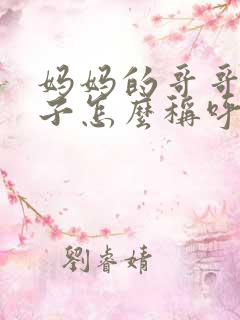 妈妈的哥哥
子怎麼稱呼
劉睿婧